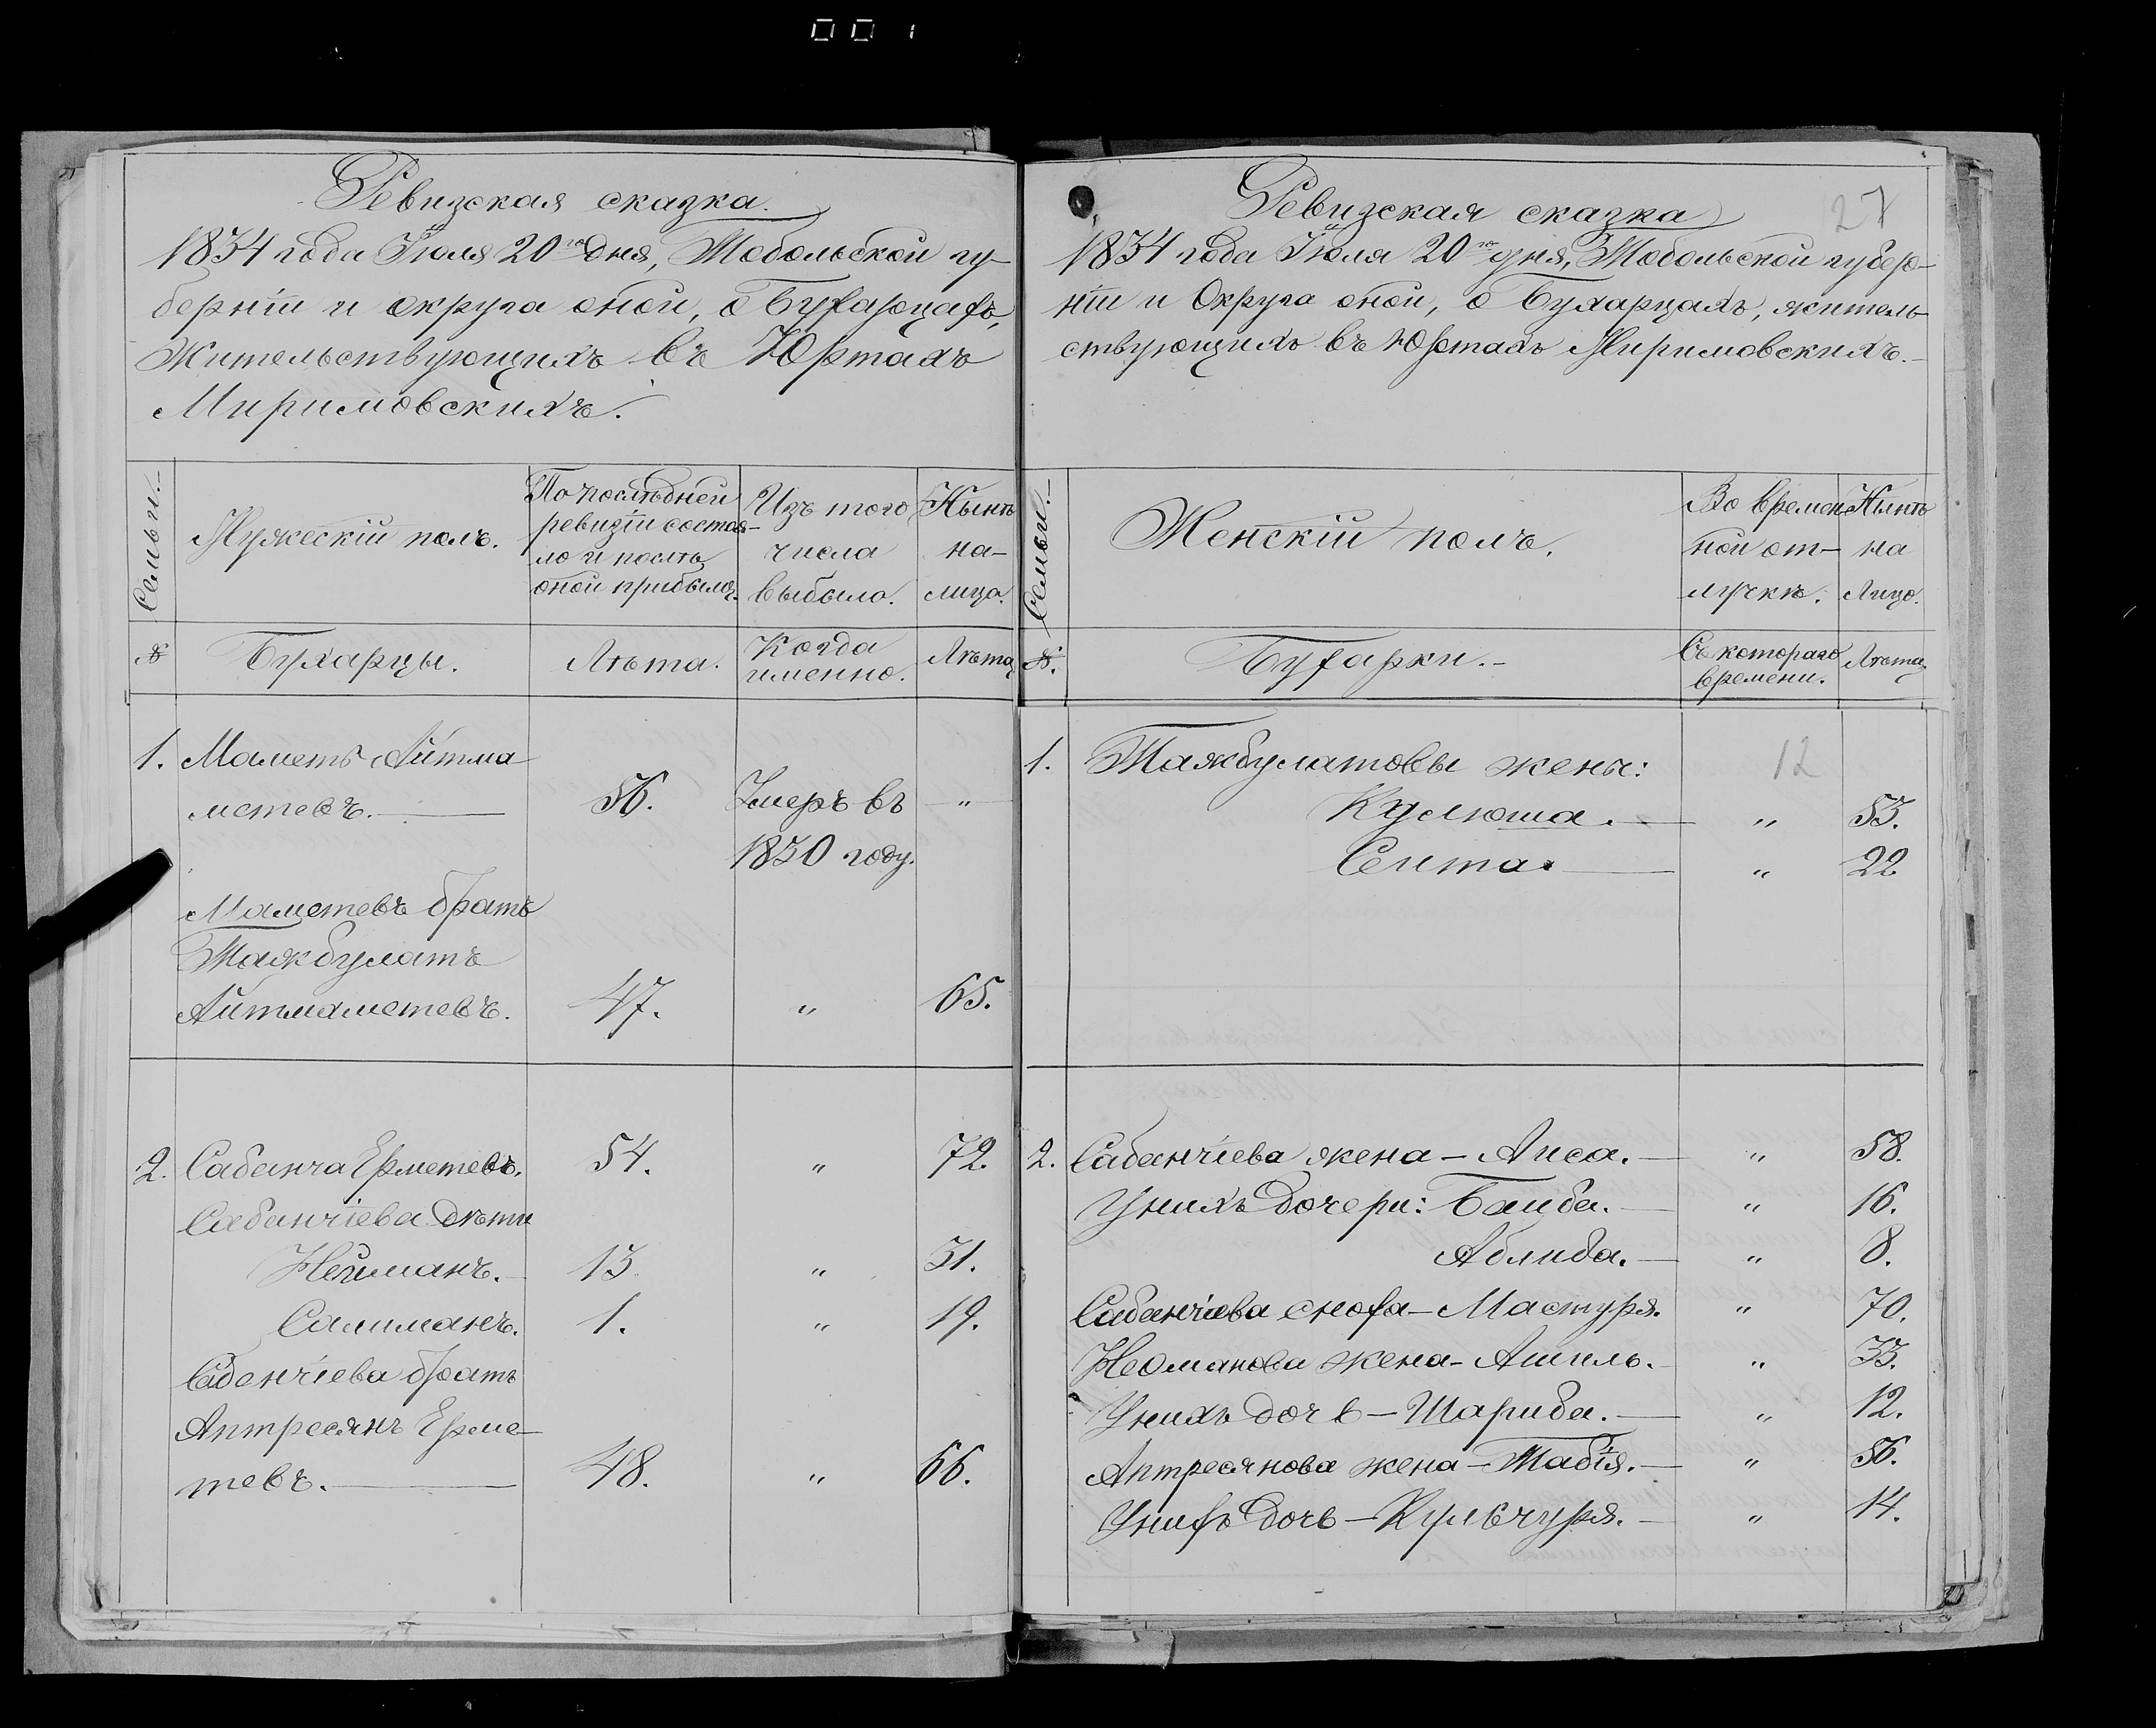 001
Ревизская сказка.
1834 года Іюля 20го дня, Тобольской гу-
берніи и округа оной, о Бухарцахъ,
Жительствующихъ въ Юртахъ
Миримовскихъ.
Семьи.
Мужескій полъ.
По послѣдней
ревизіи состоя-
ло и послѣ
оной прибыло.
Изъ того
числа
выбыло.
Нынѣ
на-
лицо.
№
Бухарцы.
Лѣта.
Когда
именно.
Лѣта
1. Маметъ Айтма
метевъ. 56. Умеръ въ "
1830 году.
Маметевъ братъ
Таяжбулатъ
Айтмаметевъ. 47. " 65.
2. Сабанча Ерметевъ. 54. " 72.
Сабанчіева дѣти
Неиманъ. 13 " 31.
Салиманъ. 1. " 19.
Сабанчіева братъ
Аптресянъ Ерме-
тевъ. 48. " 66.
Ревизская сказка
27
1834 года Іюля 20го дня, Тобольской губер-
ніи и Округа оной, о Бухарцахъ, житель
ствующихъ въ Юртахъ Миримовскихъ.
Семьи.
Женскій полъ.
Во времен
ной от-
лучкѣ.
Нынѣ
на
Лицо.
№.
Бухарки.
Съ котораго
времени.
Лѣта
1. Таяжбулатовы жены: 12
Кулюша. " 53.
Сеита. " 22
2. Сабанчіева жена - Аиса. " 58.
У нихъ дочери: Баиба. " 16.
Аблиба. " 8.
Сабанчіева сноха - Мастуря. " 70.
Неоманова жена - Ашиль. " 33.
У нихъ дочь - Шариба. " 12.
Аптресянова жена - Табія. " 56.
У нихъ дочь - Кульчуря. " 14.